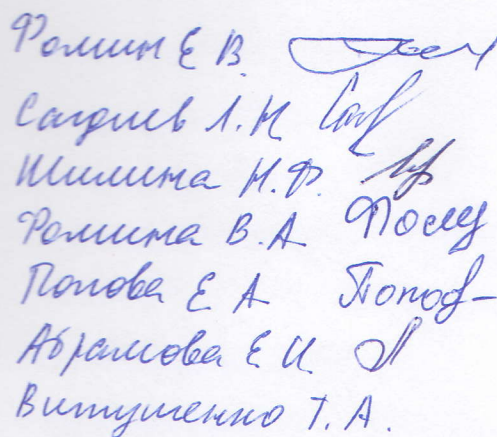 Фомин Е В.
Сагдиев Л. Н
Шилина Н. Ф.
Фомина В. А
Попова Е А Попов
Абрамова Е И
Витушенко Т. А.